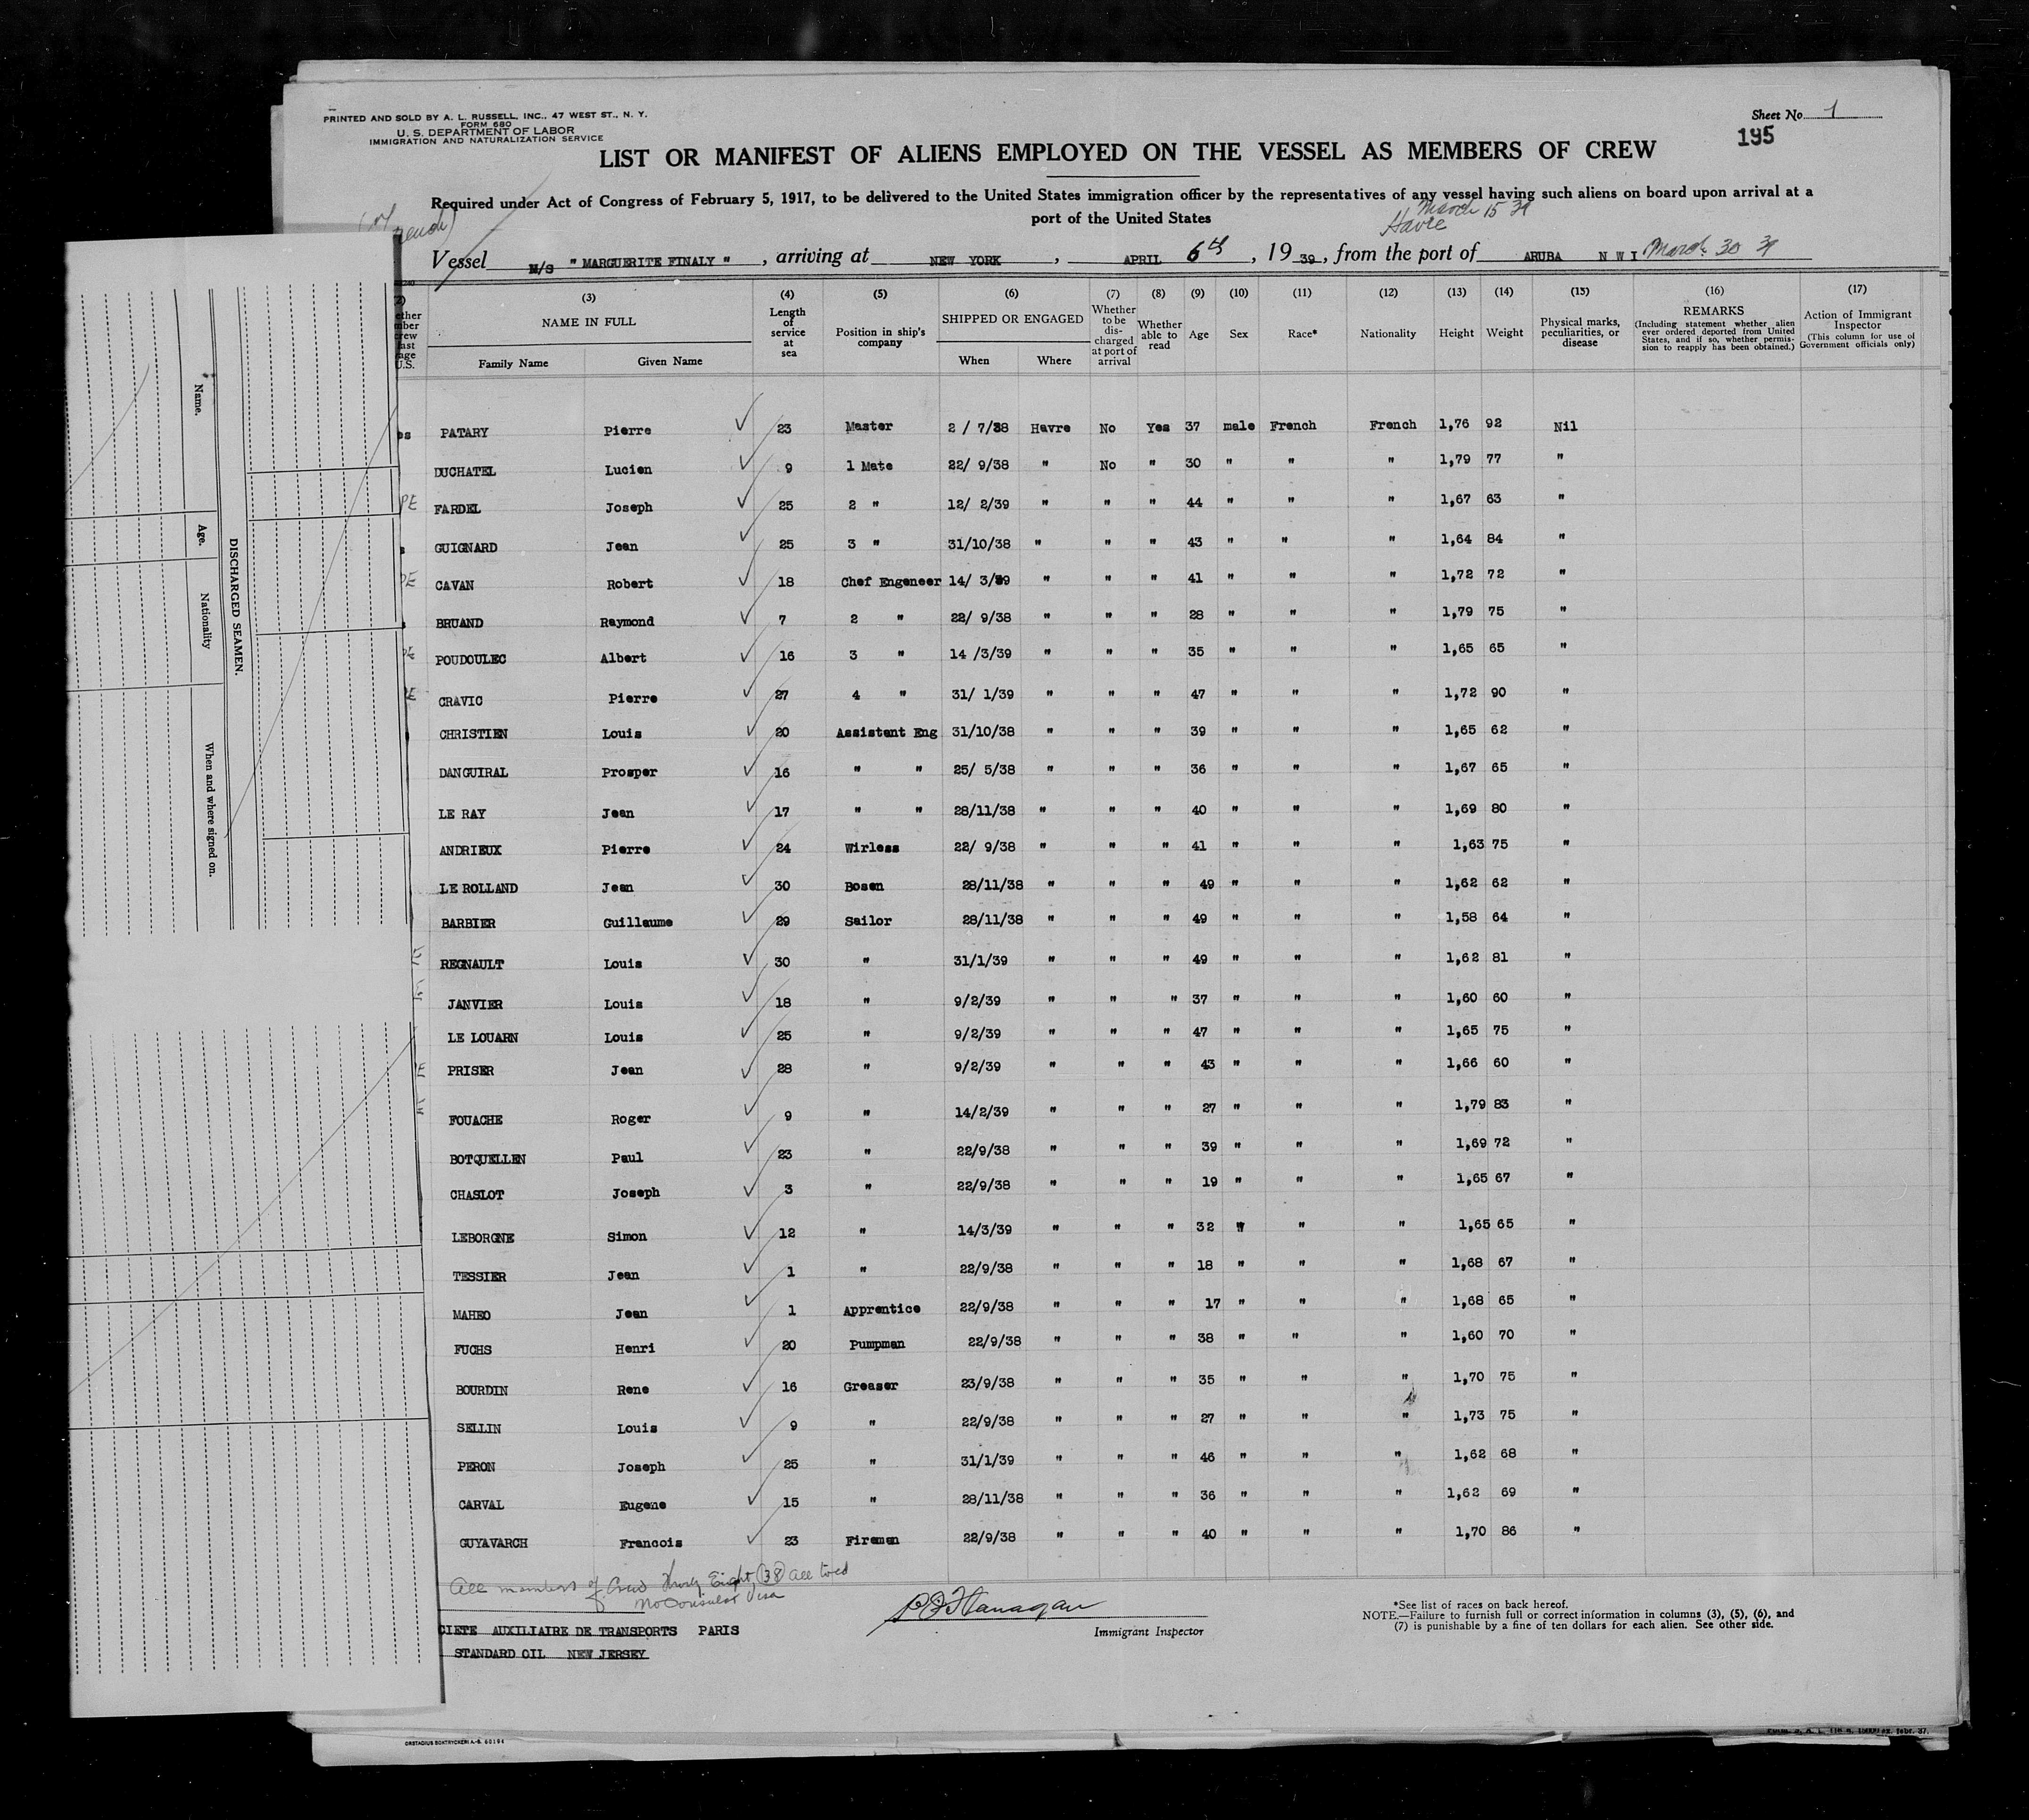 PRINTED AND SOLD BY A. L. RUSSELL, INC., 47 WEST ST., N. Y.
FORM 680
U. S. DEPARTMENT OF LABOR
IMMIGRATION AND NATURALIZATION SERVICE
Sheet No. 1
195
LIST OR MANIFEST OF ALIENS EMPLOYED ON THE VESSEL AS MEMBERS OF CREW
Required under Act of Congress of February 5, 1917, to be delivered to the United States immigration officer by the representatives of any vessel having such aliens on board upon arrival at a
port of the United States
March 15 39
Havre
Vessel M/S " MARGUERITE FINALY " , arriving at NEW YORK , APRIL 6th , 19 39 , from the port of ARUBA N W I March 30 39
(3) (4) (5) (6) (7) (8) (9) (10) (11) (12) (13) (14) (15) (16) (17)
NAME IN FULL
Family Name Given Name
Length of service at sea
Position in ship's company
SHIPPED OR ENGAGED
When Where
Whether to be discharged at port of arrival
Whether able to read
Age
Sex
Race*
Nationality
Height
Weight
Physical marks, peculiarities, or disease
REMARKS
(Including statement whether alien ever ordered deported from United States, and if so, whether permission to reapply has been obtained.)
Action of Immigrant Inspector
(This column for use of Government officials only)
PATARY Pierre 23 Master 2 / 7/38 Havre No Yes 37 male French French 1,76 92 Nil
DUCHATEL Lucien 9 1 Mate 22/ 9/38 " No " 30 " " " 1,79 77 "
FARDEL Joseph 25 2 " 12/ 2/39 " " " 44 " " " 1,67 63 "
GUIGNARD Jean 25 3 " 31/10/38 " " " 43 " " " 1,64 84 "
CAVAN Robert 18 Chef Engeneer 14/ 3/39 " " " 41 " " " 1,72 72 "
BRUAND Raymond 7 2 " 22/ 9/38 " " " 28 " " " 1,79 75 "
POUDOULEC Albert 16 3 " 14 /3/39 " " " 35 " " " 1,65 65 "
CRAVIC Pierre 27 4 " 31/ 1/39 " " " 47 " " " 1,72 90 "
CHRISTIEN Louis 20 Assistant Eng 31/10/38 " " " 39 " " " 1,65 62 "
DANGUIRAL Prosper 16 " " 25/ 5/38 " " " 36 " " " 1,67 65 "
LE RAY Jean 17 " " 28/11/38 " " " 40 " " " 1,69 80 "
ANDRIEUX Pierre 24 Wirless 22/ 9/38 " " " 41 " " " 1,63 75 "
LE ROLLAND Jean 30 Bosen 28/11/38 " " " 49 " " " 1,62 62 "
BARBIER Guillaume 29 Sailor 28/11/38 " " " 49 " " " 1,58 64 "
REGNAULT Louis 30 " 31/1/39 " " " 49 " " " 1,62 81 "
JANVIER Louis 18 " 9/2/39 " " " 37 " " " 1,60 60 "
LE LOUARN Louis 25 " 9/2/39 " " " 47 " " " 1,65 75 "
PRISER Jean 28 " 9/2/39 " " " 43 " " " 1,66 60 "
FOUACHE Roger 9 " 14/2/39 " " " 27 " " " 1,79 83 "
BOTQUELLEN Paul 23 " 22/9/38 " " " 39 " " " 1,69 72 "
CHASLOT Joseph 3 " 22/9/38 " " " 19 " " " 1,65 67 "
LEBORGNE Simon 12 " 14/3/39 " " " 32 " " " 1,65 65 "
TESSIER Jean 1 " 22/9/38 " " " 18 " " " 1,68 67 "
MAHEO Jean 1 Apprentice 22/9/38 " " " 17 " " " 1,68 65 "
FUCHS Henri 20 Pumpman 22/9/38 " " " 38 " " " 1,60 70 "
BOURDIN Rene 16 Greaser 23/9/38 " " " 35 " " " 1,70 75 "
SELLIN Louis 9 " 22/9/38 " " " 27 " " " 1,73 75 "
PERON Joseph 25 " 31/1/39 " " " 46 " " " 1,62 68 "
CARVAL Eugene 15 " 28/11/38 " " " 36 " " " 1,62 69 "
GUYAVARCH Francois 23 Firemen 22/9/38 " " " 40 " " " 1,70 86 "
All members of Crew Thirty Eight (38) all told
No Consular Visa
CIETE AUXILIAIRE DE TRANSPORTS PARIS
STANDARD OIL NEW JERSEY
Immigrant Inspector
*See list of races on back hereof.
NOTE.—Failure to furnish full or correct information in columns (3), (5), (6), and
(7) is punishable by a fine of ten dollars for each alien. See other side.
DISCHARGED SEAMEN.
Name.
Age.
Nationality
When and where signed on.